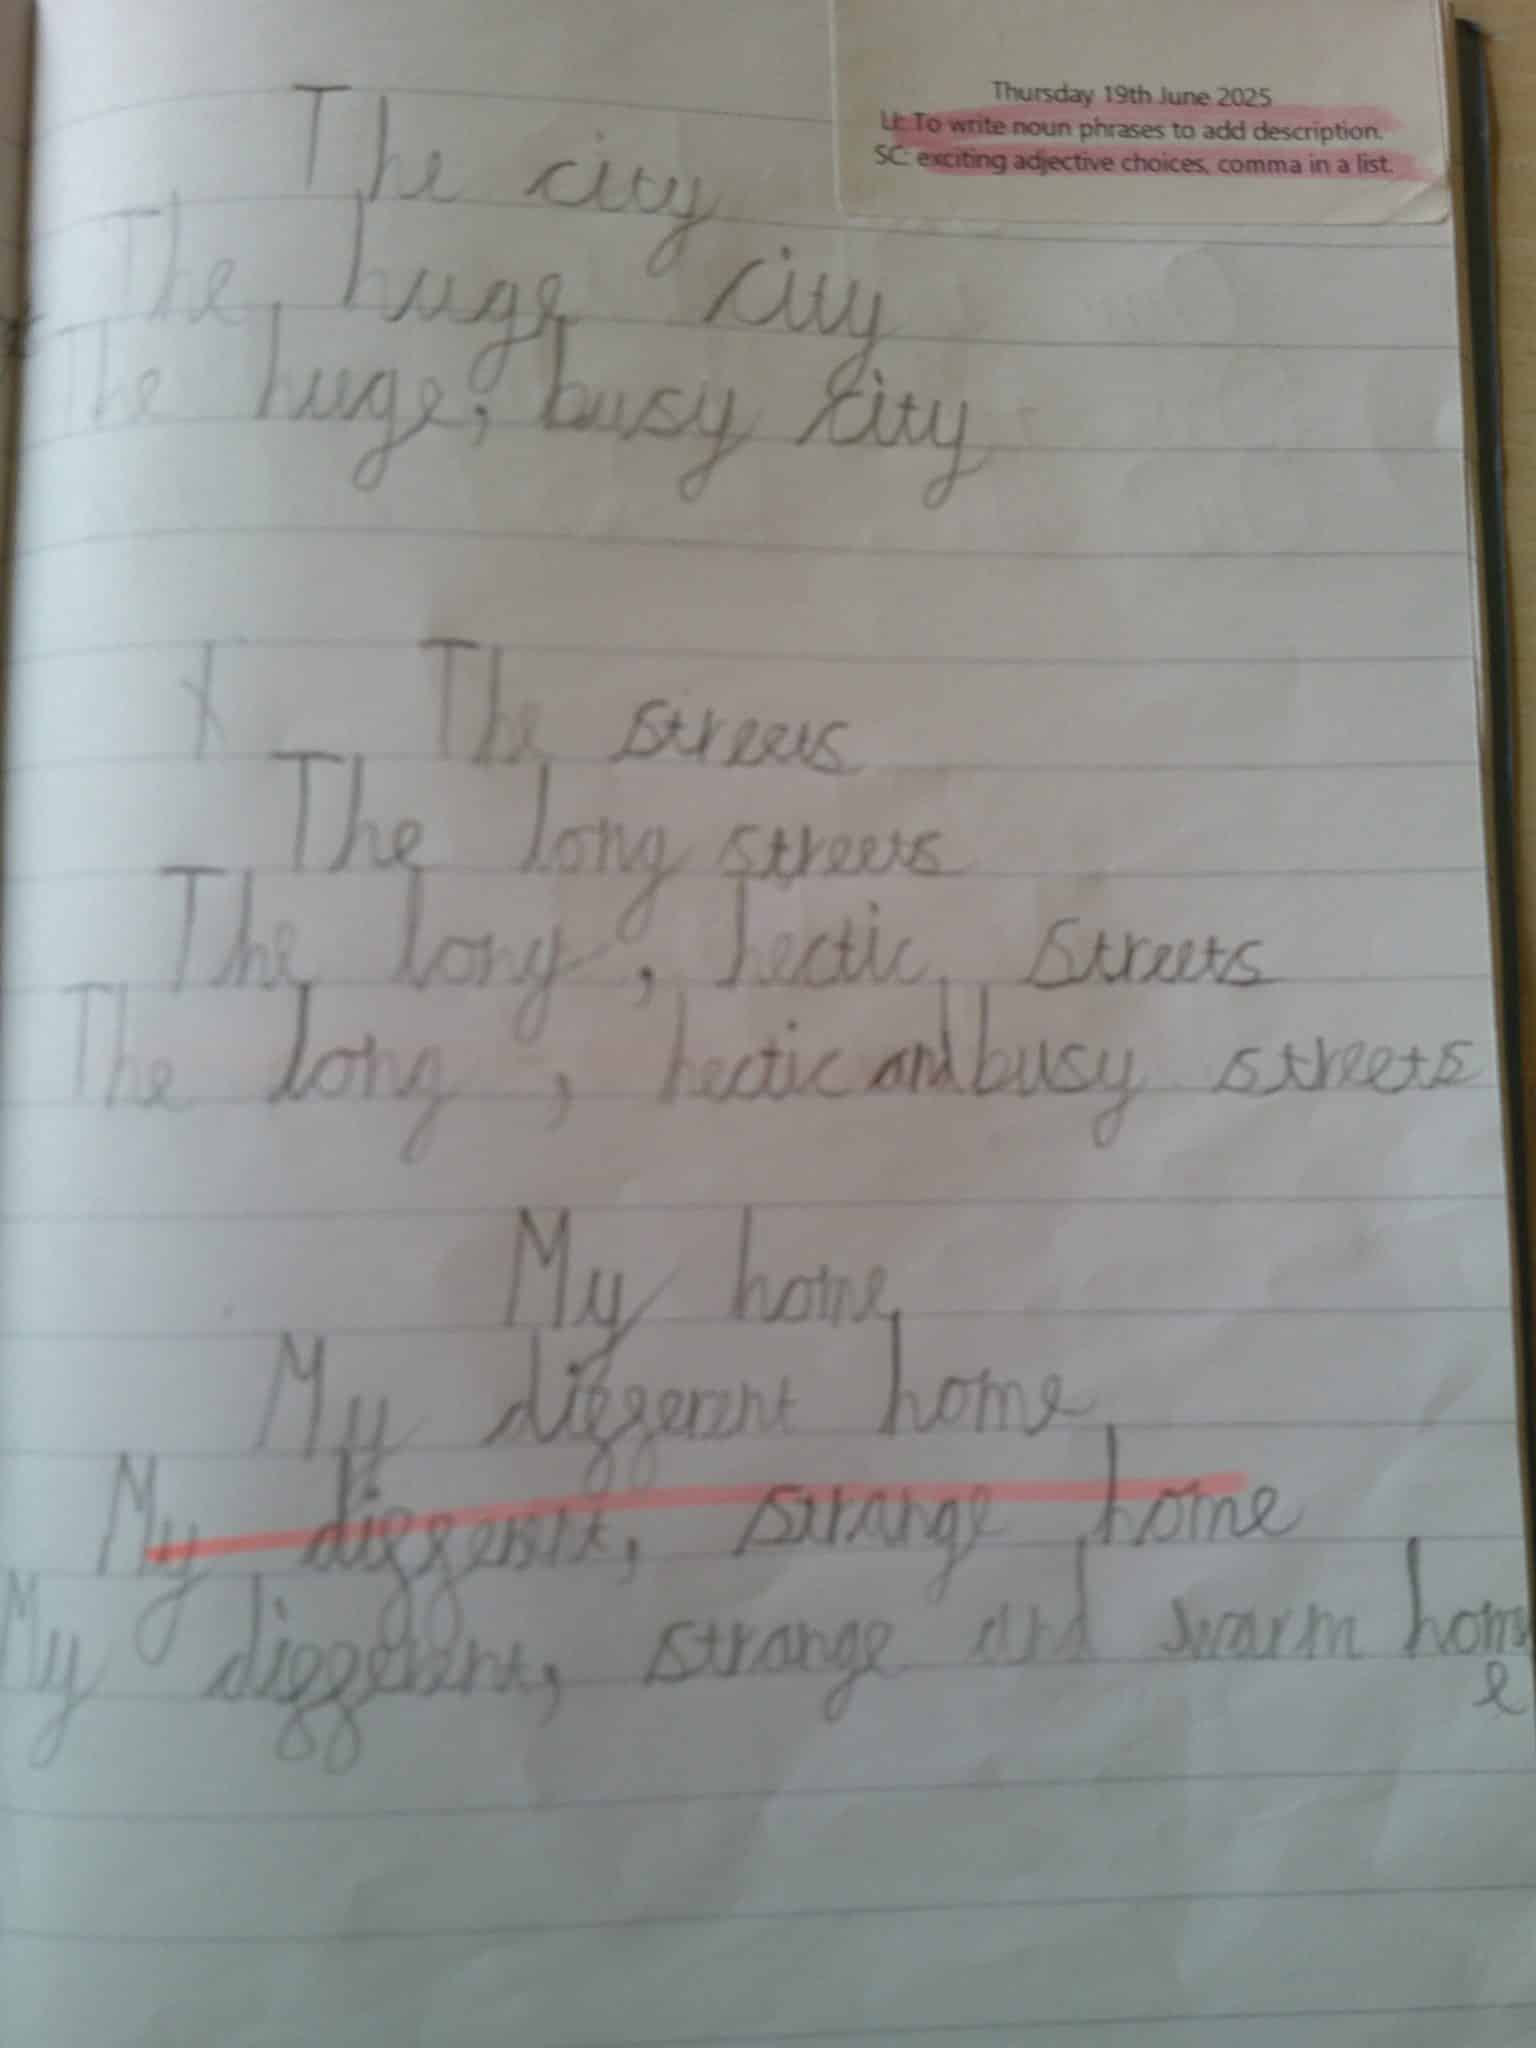 Thursday 19th June 2025
LI: To write noun phrases to add description.
SC: exciting adjective choices, comma in a list.
The city
The huge city
The huge, busy city
The streets
The long streets
The long, hectic streets
The long, hectic and busy streets
My home
My different home
My different, strange home
My different, strange and warm home